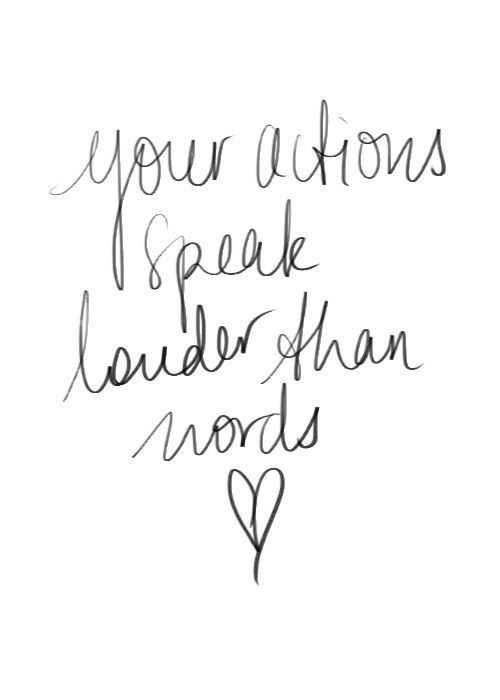 your actions
speak
louder than
words